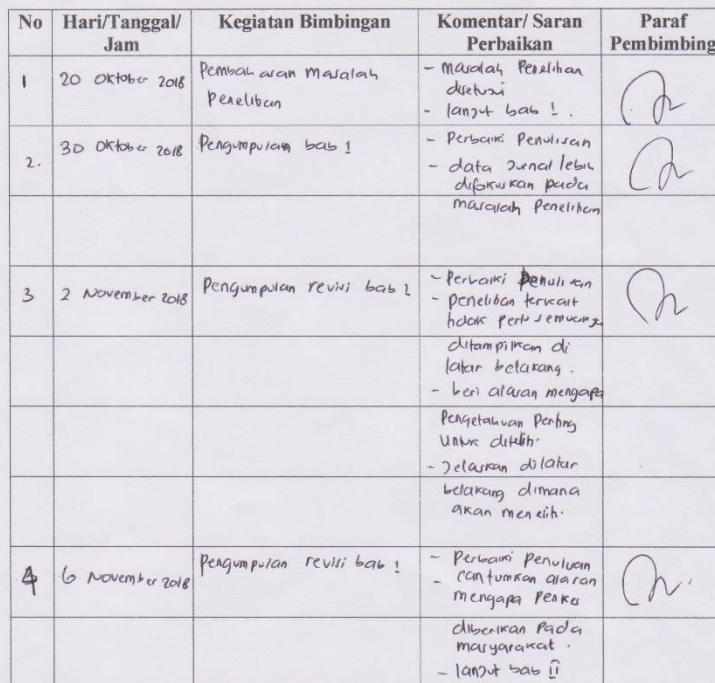 No Hari/Tanggal/ Kegiatan Bimbingan Komentar/ Saran Paraf
Jam Perbaikan Pembimbing
1 20 Oktober 2018 Pembahasan Masalah - Masalah Penelitian
Penelitian disetujui
- lanjut bab I.
2. 30 Oktober 2018 Pengumpulan bab I - Perbaiki Penulisan
- data Jurnal lebih
difokuskan pada
masalah Penelitian
3 2 November 2018 Pengumpulan revisi bab I - Perbaiki Penulisan
- penelitian terkait
tidak perlu semuanya
ditampilkan di
latar belakang.
- beri alasan mengapa
Pengetahuan Penting
untuk diteliti.
- Jelaskan dilatar
belakang dimana
akan meneliti.
4 6 November 2018 Pengumpulan revisi bab I - Perbaiki Penulisan
- cantumkan alasan
mengapa Penkes
diberikan Pada
masyarakat.
- lanjut bab II